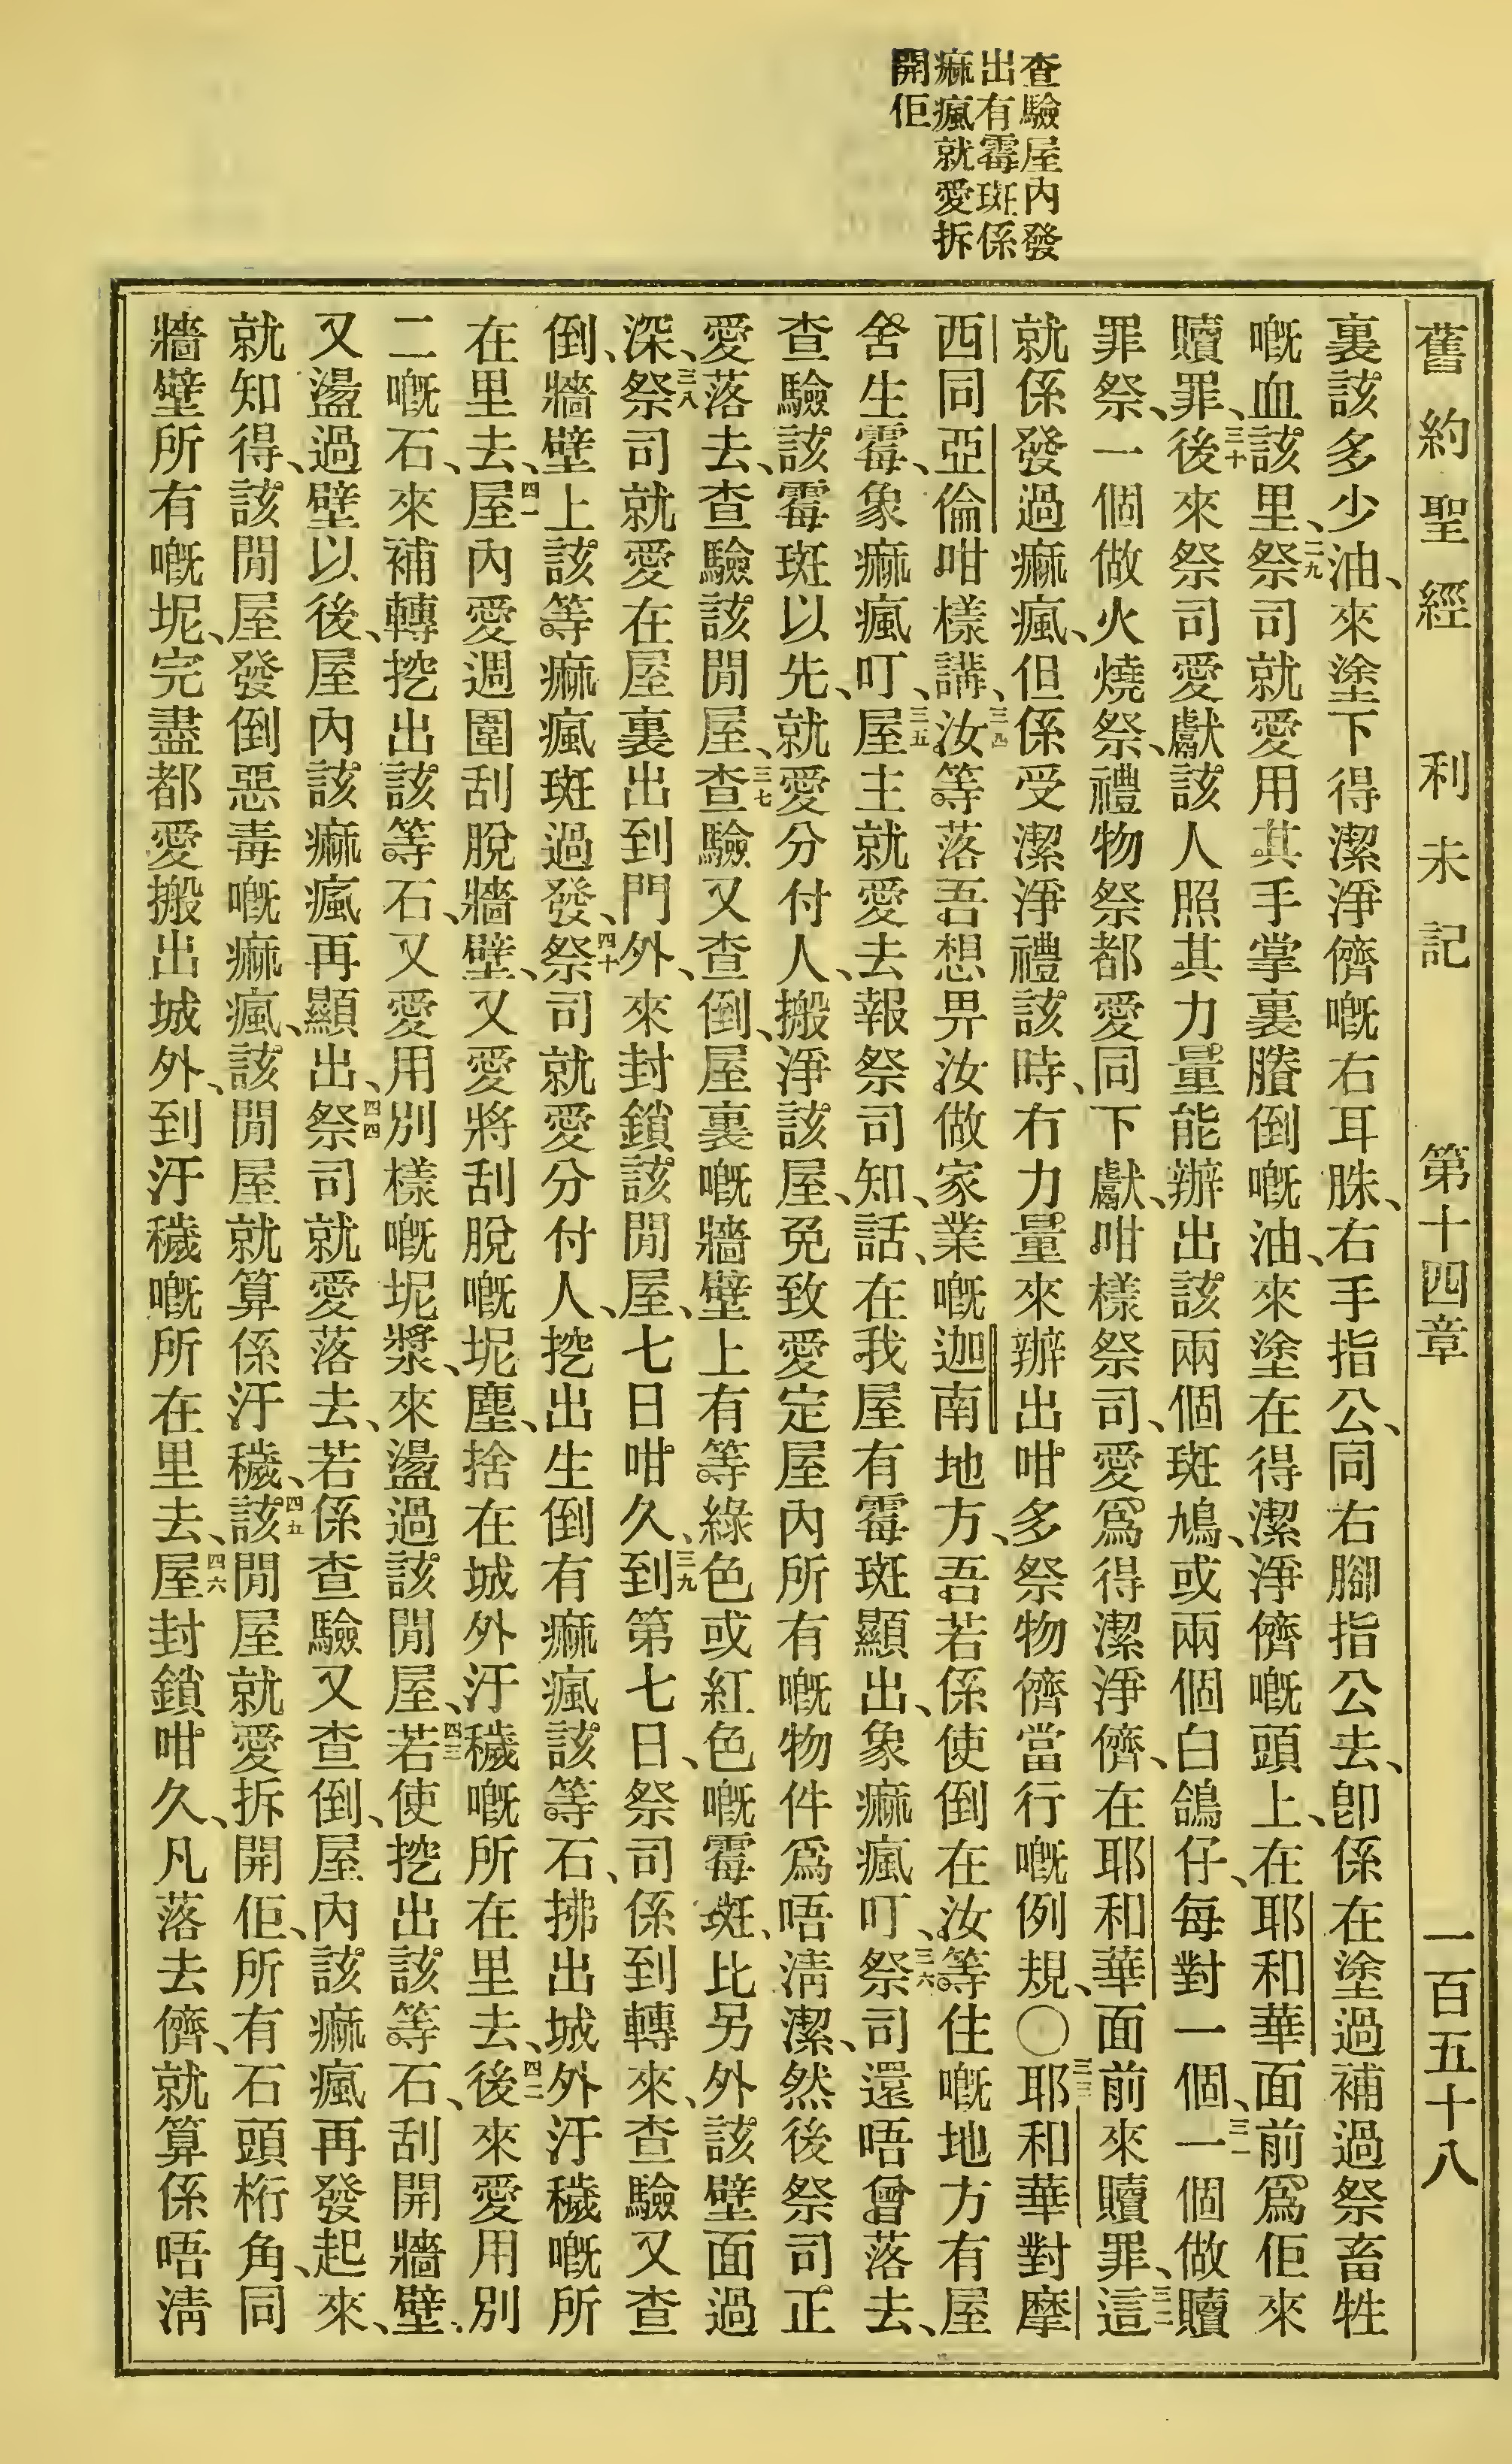 查驗屋內發
出有霉斑係
痲瘋就愛拆
開佢
舊約聖經 利未記 第十四章 一百五十八
裏該多少油、來塗下得潔淨儕嘅右耳朥、右手指公、同右腳指公去、卽係在塗過補過祭畜牲
嘅血該里、二九祭司就愛用其手掌裏賸倒嘅油、來塗在得潔淨儕嘅頭上、在耶和華面前爲佢來
贖罪、三十後來祭司愛獻該人照其力量能辦出該兩個斑鳩、或兩個白鴿仔、每對一個、三一一個做贖
罪祭、一個做火燒祭、禮物祭都愛同下獻、咁樣祭司、愛爲得潔淨儕、在耶和華面前來贖罪、三二這
就係發過痲瘋、但係受潔淨禮該時、冇力量來辦出咁多祭物儕當行嘅例規、〇三三耶和華對摩
西同亞倫咁樣講、三四汝等落吾想畀汝做家業嘅迦南地方、吾若係使倒在汝等住嘅地方有屋
舍生霉、象痲瘋叮、三五屋主就愛去報祭司知、話、在我屋有霉斑顯出、象痲瘋叮、三六祭司還唔曾落去、
查驗該霉斑以先、就愛分付人、搬淨該屋、免致愛定屋內所有嘅物件爲唔淸潔、然後祭司正
愛落去、查驗該間屋、三七查驗又查倒、屋裏嘅牆壁上有等綠色或紅色嘅霉斑、比另外該壁面過
深、三八祭司就愛在屋裏出到門外、來封鎖該間屋、七日咁久、三九到第七日、祭司係到轉來、查驗又查
倒、牆壁上該等痲瘋斑過發、四十祭司就愛分付人、挖出生倒有痲瘋該等石、拂出城外汙穢嘅所
在里去、四一屋內愛週圍刮脫牆壁、又愛將刮脫嘅坭塵、捨在城外汙穢嘅所在里去、四二後來愛用別
二嘅石、來補轉挖出該等石、又愛用別樣嘅坭漿、來盪過該間屋、四三若使挖出該等石、刮開牆壁、
又盪過壁以後、屋內該痲瘋再顯出、四四祭司就愛落去、若係查驗又查倒、屋內該痲瘋再發起來、
就知得、該間屋發倒惡毒嘅痲瘋、該間屋就算係汙穢、四五該間屋就愛拆開佢、所有石頭桁角、同
牆壁所有嘅坭、完盡都愛搬出城外、到汙穢嘅所在里去、四六屋封鎖咁久、凡落去儕、就算係唔淸